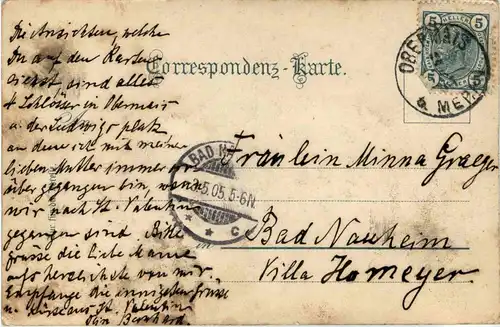 Die Ansichten, welche
Du auf den Karten
siehst sind alles
4 Schlösser in Obermais
u. der Ludwigsplatz
an dem ich mit meiner
lieben Mutter immer
übergegangen bin, wenn
wir nach St. Valentin
gegangen sind. Bitte
grüsse die liebe Mama
aufs herzlichste von mir.
Empfange die innigsten Grüsse
u. Küsse aus St. Valentin
Dein Bernhard
Correspondenz-Karte.
5 HELLER 5
5 5
OBERMAIS
5
a MER
BAD N
5.05.5-6N
* * C
Fräulein Minna Graeger
Bad Nauheim
Villa Homeyer.